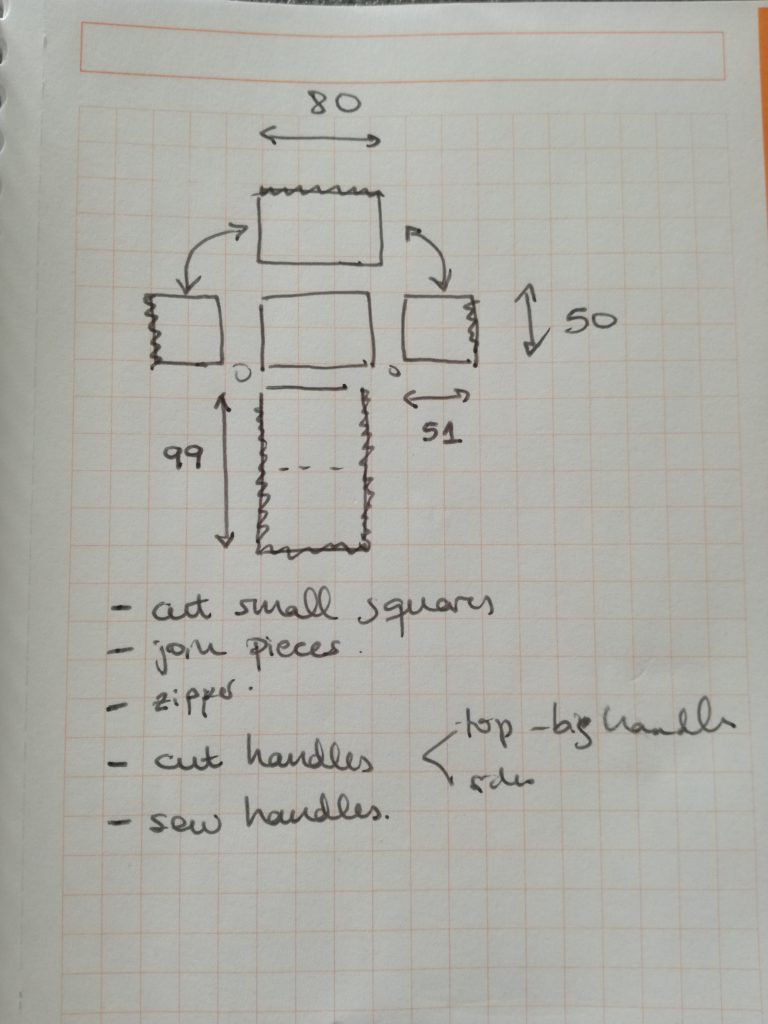 80
50
51
99
- cut small squares
- join pieces.
- zipper.
- cut handles < top - big handle
side
- sew handles.